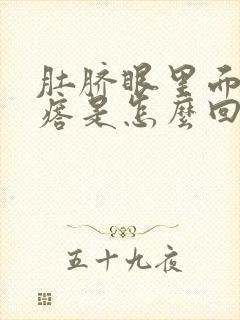 肚脐眼里而
痞是怎麼回
五十九夜